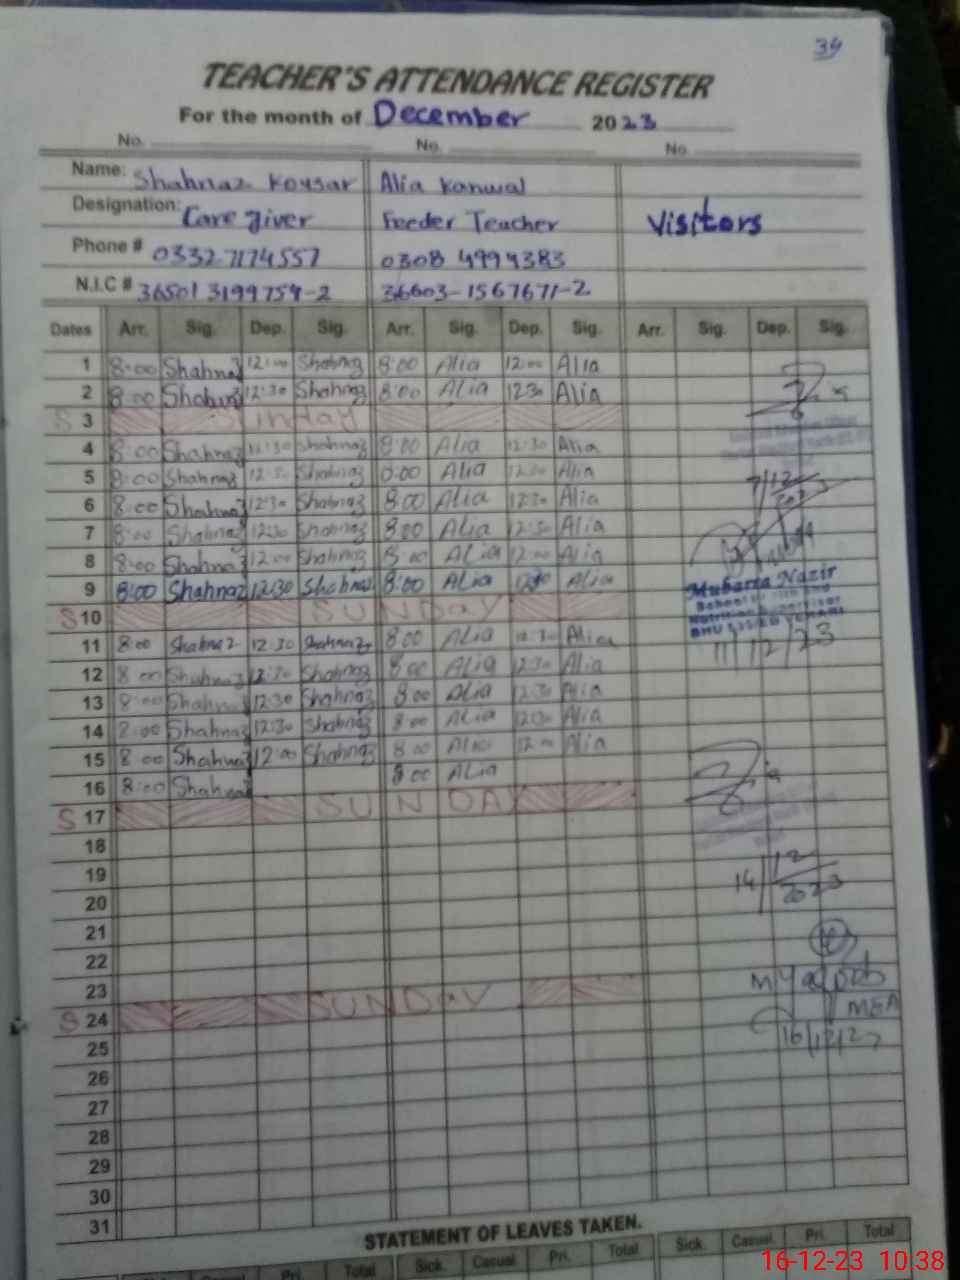 39
TEACHER'S ATTENDANCE REGISTER
For the month of December 2023
No. No. No.
Name: Shahnaz Kousar Alia Kanwal
Designation: Care giver Feeder Teacher Visitors
Phone # 0332 7174557 0308 4994383
N.I.C # 36501 3199759-2 36603-1567671-2
Dates Arr. Sig. Dep. Sig. Arr. Sig. Dep. Sig. Arr. Sig. Dep. Sig.
1 8:00 Shahnaz 12:00 Shahnaz 8:00 Alia 12:00 Alia
2 8:00 Shahnaz 12:30 Shahnaz 8:00 Alia 12:30 Alia
S 3 Sunday
4 8:00 Shahnaz 12:30 Shahnaz 8:00 Alia 12:30 Alia
5 8:00 Shahnaz Shahnaz Alia Alia
6 8:00 Shahnaz 12:30 Shahnaz 8:00 Alia 12:30 Alia
7/12
7 8:00 Shahnaz 12:30 Shahnaz 8:00 Alia 12:30 Alia
8 8:00 Shahnaz 12:00 Shahnaz 8:00 Alia 12:00 Alia
9 8:00 Shahnaz 12:30 Shahnaz 8:00 Alia 12:30 Alia
Mubarra Nazir
School
Nutrition Supervisor
BHU
S 10 SUNDAY
11 8:00 Shahnaz 12:30 Shahnaz 8:00 Alia 12:30 Alia
11/12/23
12 8:00 Shahnaz 12:30 Shahnaz 8:00 Alia 12:30 Alia
13 8:00 Shahnaz 12:30 Shahnaz 8:00 Alia 12:30 Alia
14 8:00 Shahnaz 12:30 Shahnaz 8:00 Alia 12:30 Alia
15 8:00 Shahnaz 12:00 Shahnaz 8:00 Alia 12:00 Alia
16 8:00 Shahnaz 8:00 Alia
S 17 SUNDAY
18
19 14/12/2023
20
21
22
23 M Yaqoob
S 24 SUNDAY MEA
25 16/12/23
26
27
28
29
30
31
STATEMENT OF LEAVES TAKEN.
Pri. Total Sick. Casual Pri. Total Sick. Casual Pri. Total
16-12-23 10:38